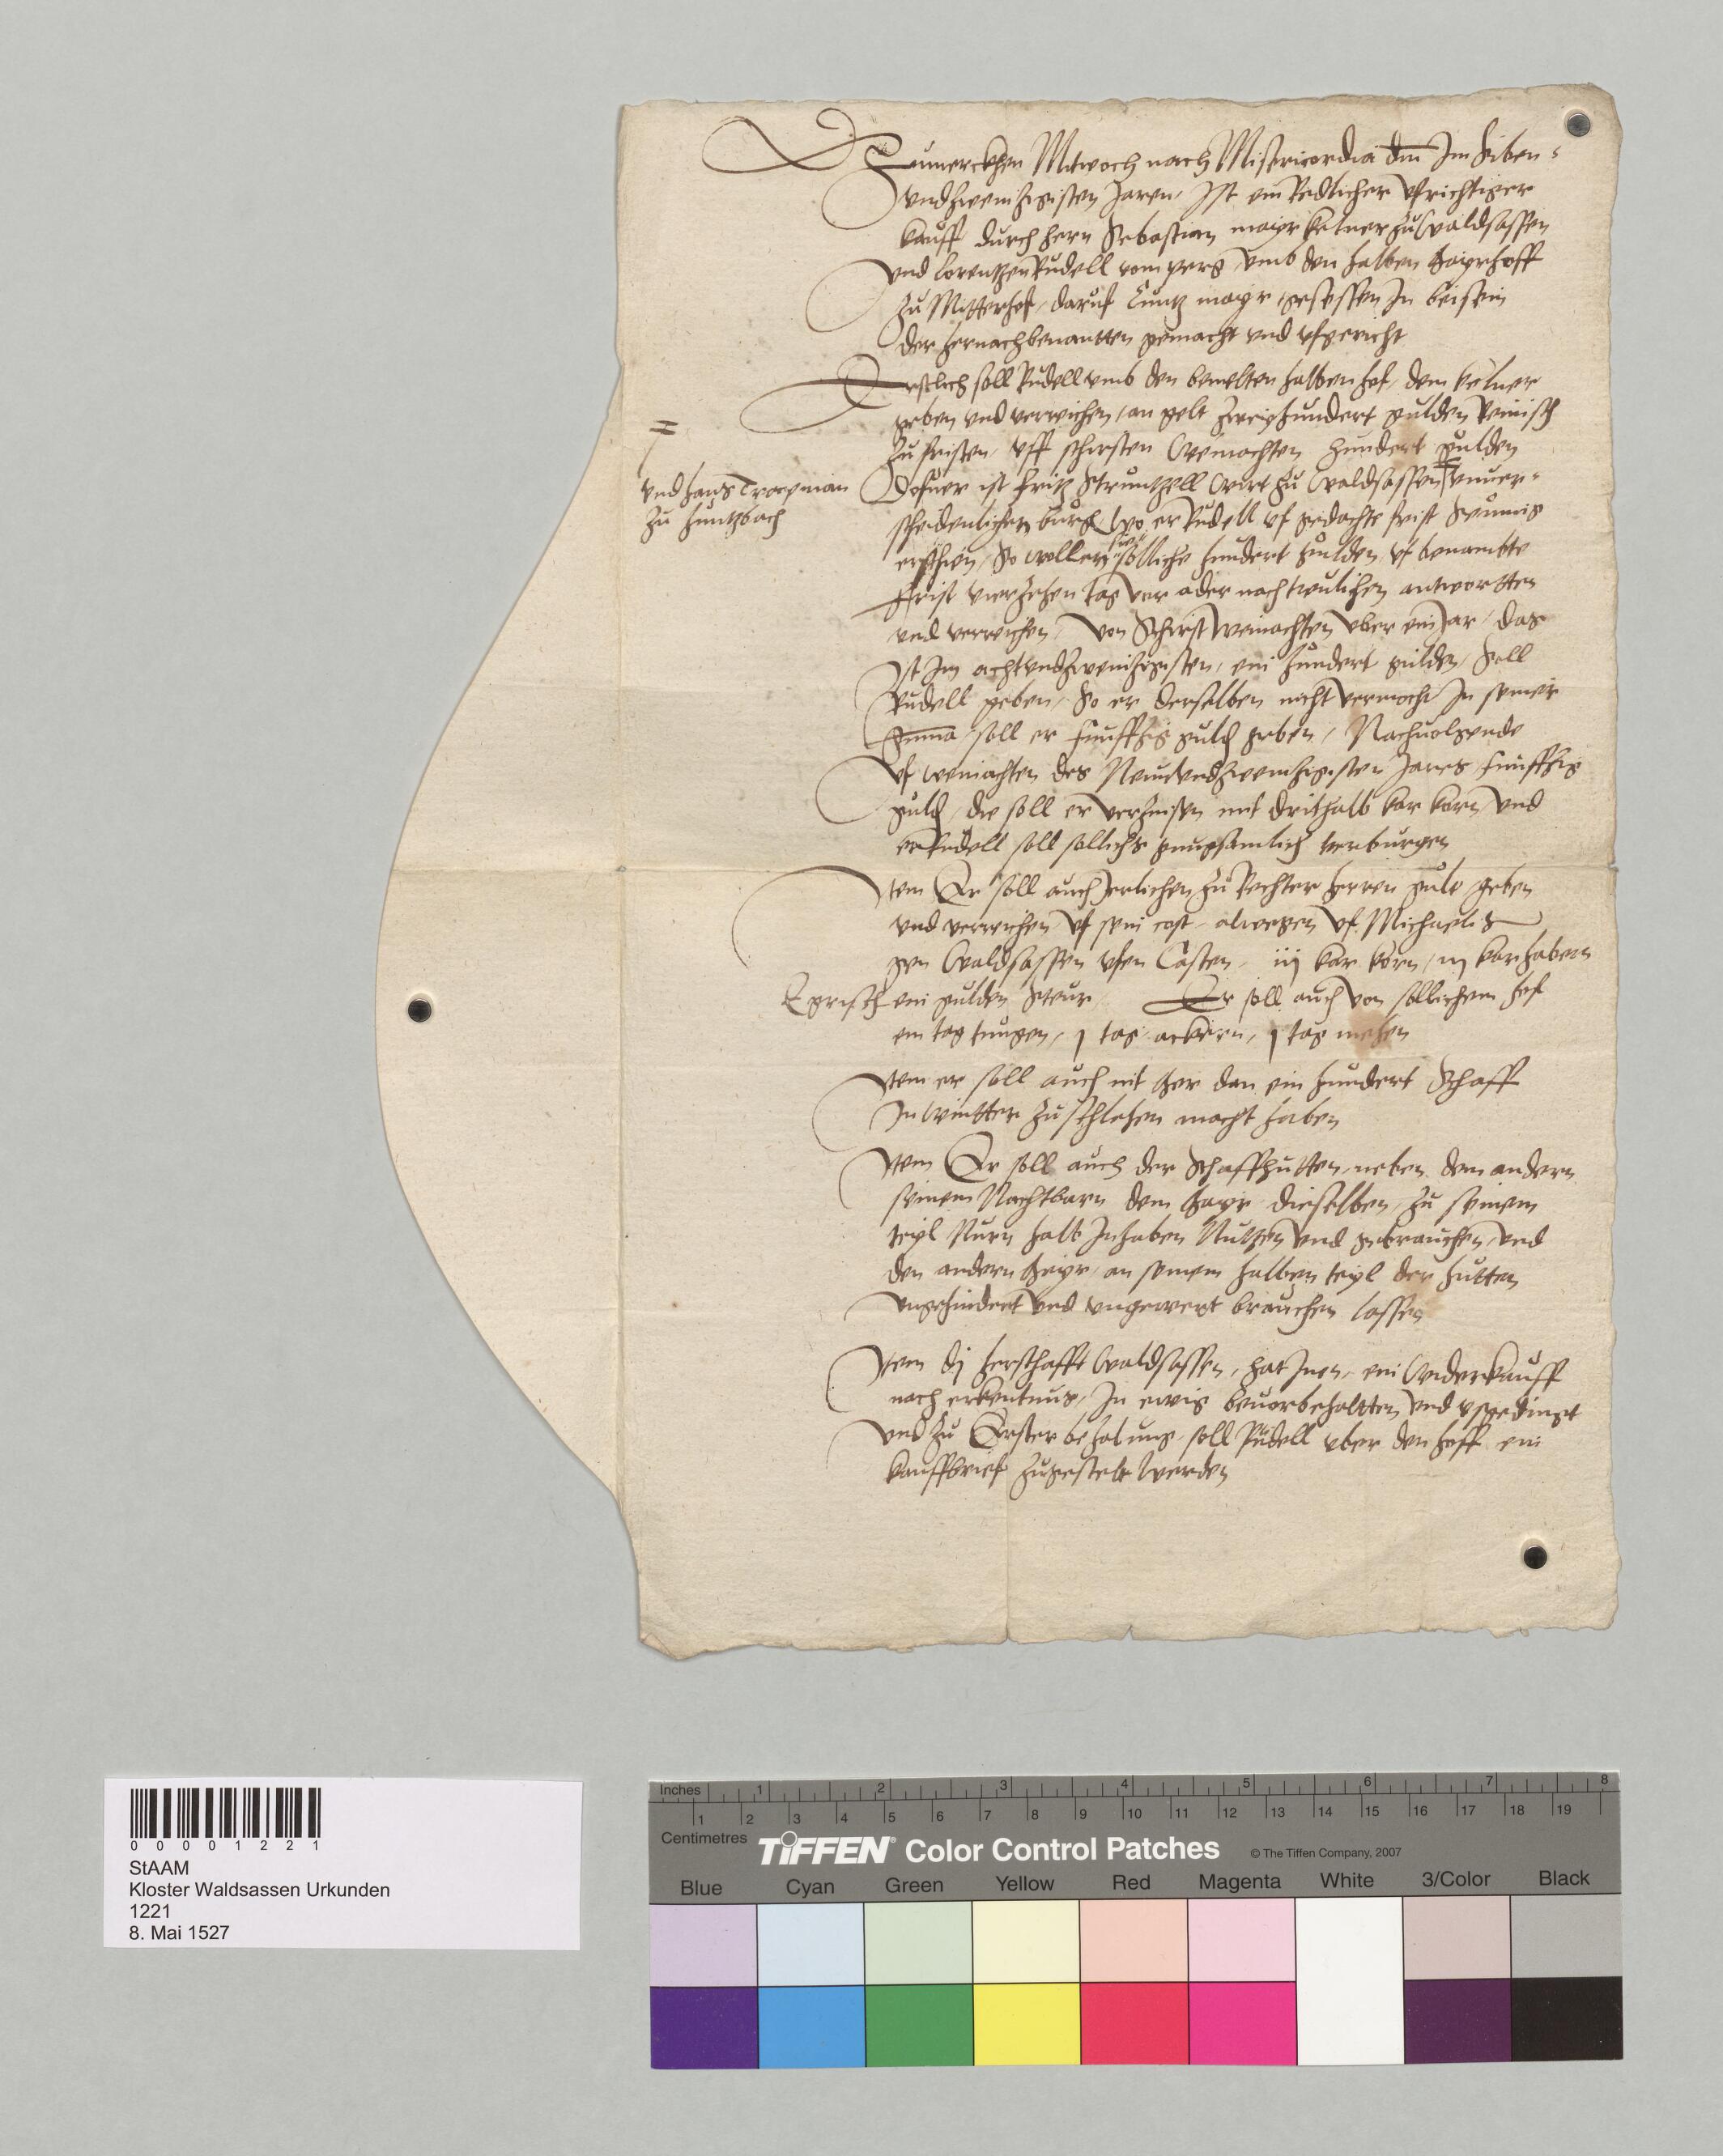 Zumerckhen Mitwoch nach Misericordia dni Im siben-
vndzweinzigisten Jaren, Ist ein Redlicher vfrichtiger
kauff durch hern Sebastian mayr kelner zu Waldsassen
vnd Lorentzen Rudell vom perg vmb den halben hoff
zu Mitterhof, daruf Cuntz mayr gesessen In beisein
der hernachbenantten gemacht vnd vfgericht
Erstlich soll Rudell vmb den bemelten halben hof, dem kelner
geben vnd verreichen, an gelt zweyhundert gulden Reinisch
zu fristen, vff schirsten Weinachten hundert gulden
Dofuer ist Fritz Struntzell Wirt zu Waldsassen vnuer-
vnd Hans
zu Huntzbach
schidenlichen burg, Wo er Rudell vf gedachte frist seumig
erschin, So wollen sie solliche hundert gulden vf benambte
Frist vierzehen tag vor ader nach antwortten
vnd verreichen, Von Schirst Weinachten vber ein Jar, das
Ist Im achtvndzweinzigisten, ein hundert gulden, Soll
Rudell geben, So er derselben nicht vermocht In seiner
Summa soll er funffzig guld geben, Nachuolgende
vf weinachten des Neunvndzweinzigisten Jares funffzig
guld, die soll er verzinsen mit drithalb kar korn vnd
er Rudell soll sollichs gnugsamlich verburgen
Item Er soll auch Jerlichen zu Rechter herren gult geben
vnd verreichen vf sein cost, alwegen vf Michaelis
gen Waldsassen vfen Casten, iij kar korn, iij kar habern
ein gulden Steur, Er soll auch von sollichem hof
ein tag tungen, j tag ackern, j tag mehen
Item er soll auch nit dan ein hundert Schaff
In Wintter zu schlahen macht haben
Item Er soll auch der Schaffhutten, neben dem andern
seinem Nachtbarn dem dieselben, zu seinem
teyl Nurn halb Inhaben Nutzen vnd gebrauchen, vnd
den andern an seinem halben teyl der hutten
vngehindert vnd vngewert brauchen lassen
Item dj herschafft Waldsassen, hat Inen, ein Widerkauff
nach erkentnus, In ewig beuorbehaltten vnd
vnd zu Erster bezalung, soll Rudell vber den hoff ein
kauffbrief zugestelt werden
0 0 0 0 1 2 2 1
StAAM
Kloster Waldsassen Urkunden
1221
8. Mai 1527
Inches 1 2 3 4 5 6 7 8
1 2 3 4 5 6 7 8 9 10 11 12 13 14 15 16 17 18 19
Centimetres
TIFFEN® Color Control Patches © The Tiffen Company, 2007
Blue Cyan Green Yellow Red Magenta White 3/Color Black